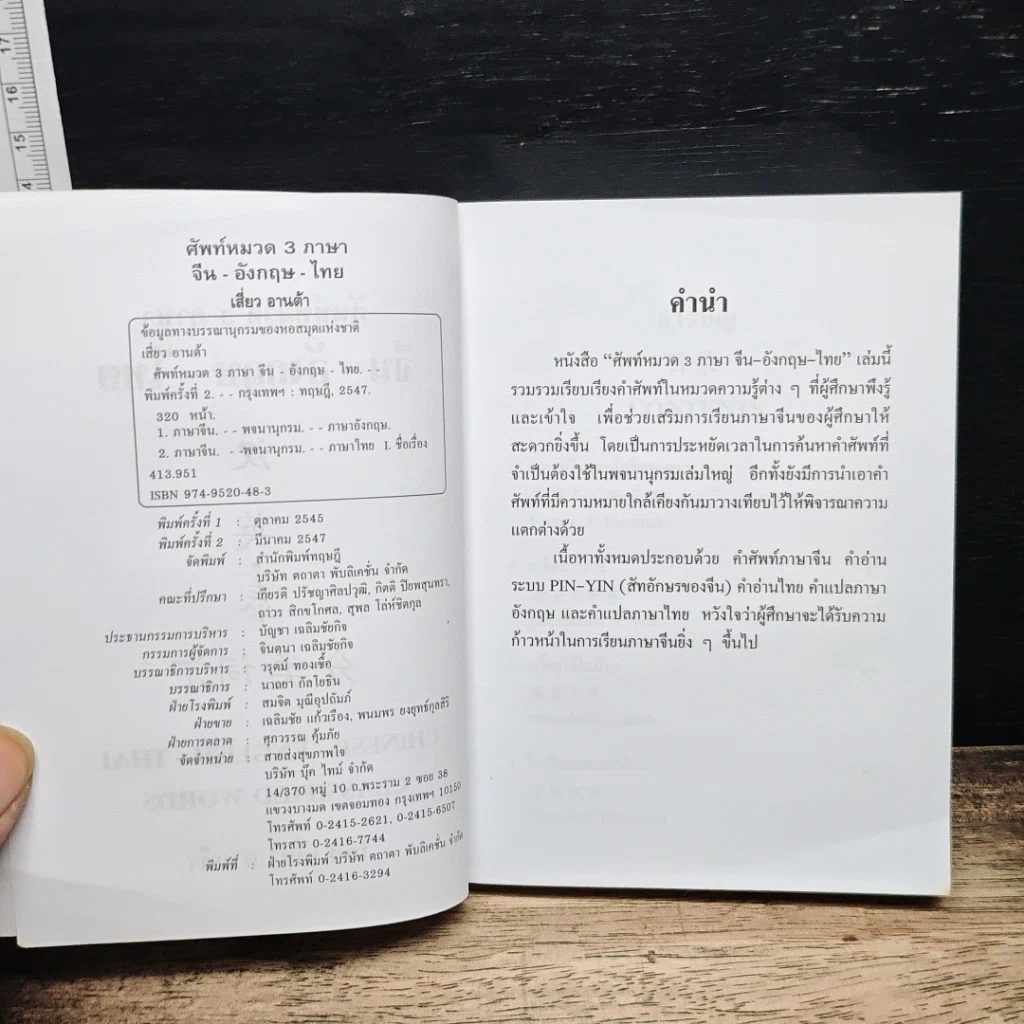 17
16
15
ศัพท์หมวด 3 ภาษา
จีน - อังกฤษ - ไทย
เสี่ยว อานต้า
ข้อมูลทางบรรณานุกรมของหอสมุดแห่งชาติ
เสี่ยว อานต้า
ศัพท์หมวด 3 ภาษา จีน - อังกฤษ - ไทย. - -
พิมพ์ครั้งที่ 2. - - กรุงเทพฯ : ทฤษฎี, 2547.
320 หน้า.
1. ภาษาจีน. - - พจนานุกรม. - - ภาษาอังกฤษ.
2. ภาษาจีน. - -พจนานุกรม. - - ภาษาไทย I. ชื่อเรื่อง
413.951
ISBN 974-9520-48-3
พิมพ์ครั้งที่ 1 : ตุลาคม 2545
พิมพ์ครั้งที่ 2 : มีนาคม 2547
จัดพิมพ์ : สำนักพิมพ์ทฤษฎี
บริษัท ตถาตา พับลิเคชั่น จำกัด
คณะที่ปรึกษา : เกียรติ ปรัชญาศิลปวุฒิ, กิตติ ปิยพสุนทรา,
ถาวร สิกขโกศล, สุพล โล่ห์ชิตกุล
ประธานกรรมการบริหาร : บัญชา เฉลิมชัยกิจ
กรรมการผู้จัดการ : จินตนา เฉลิมชัยกิจ
บรรณาธิการบริหาร : วรุตม์ ทองเชื้อ
บรรณาธิการ : นาถยา กัลโยธิน
ฝ่ายโรงพิมพ์ : สมจิต มุณีอุปถัมภ์
ฝ่ายขาย : เฉลิมชัย แก้วเรือง, พนมพร ยงยุทธ์กุลสิริ
ฝ่ายการตลาด : ศุภวรรณ คุ้มภัย
จัดจำหน่าย : สายส่งสุขภาพใจ
บริษัท บุ๊ค ไทม์ จำกัด
14/370 หมู่ 10 ถ.พระราม 2 ซอย 38
แขวงบางมด เขตจอมทอง กรุงเทพฯ 10150
โทรศัพท์ 0-2415-2621, 0-2415-6507
โทรสาร 0-2416-7744
พิมพ์ที่ : ฝ่ายโรงพิมพ์ บริษัท ตถาตา พับลิเคชั่น จำกัด
โทรศัพท์ 0-2416-3294
คำนำ
หนังสือ “ศัพท์หมวด 3 ภาษา จีน-อังกฤษ-ไทย” เล่มนี้
รวมรวมเรียบเรียงคำศัพท์ในหมวดความรู้ต่าง ๆ ที่ผู้ศึกษาพึงรู้
และเข้าใจ เพื่อช่วยเสริมการเรียนภาษาจีนของผู้ศึกษาให้
สะดวกยิ่งขึ้น โดยเป็นการประหยัดเวลาในการค้นหาคำศัพท์ที่
จำเป็นต้องใช้ในพจนานุกรมเล่มใหญ่ อีกทั้งยังมีการนำเอาคำ
ศัพท์ที่มีความหมายใกล้เคียงกันมาวางเทียบไว้ให้พิจารณาความ
แตกต่างด้วย
เนื้อหาทั้งหมดประกอบด้วย คำศัพท์ภาษาจีน คำอ่าน
ระบบ PIN-YIN (สัทอักษรของจีน) คำอ่านไทย คำแปลภาษา
อังกฤษ และคำแปลภาษาไทย หวังใจว่าผู้ศึกษาจะได้รับความ
ก้าวหน้าในการเรียนภาษาจีนยิ่ง ๆ ขึ้นไป